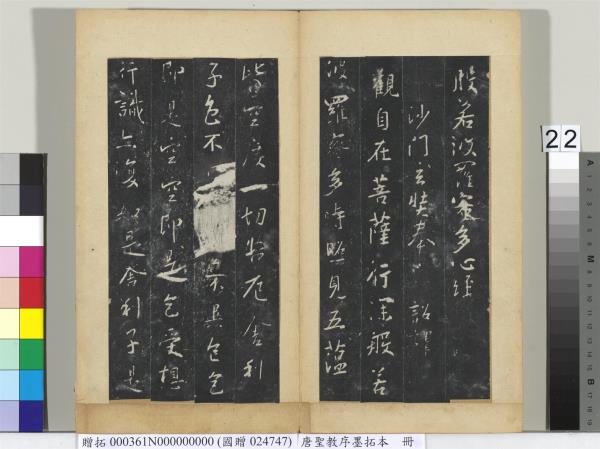 般若波羅蜜多心經
沙門玄奘奉 詔譯
觀自在菩薩行深般若
波羅蜜多時照見五蘊
皆空度一切苦厄舍利
子色不 異色色
即是空空即是色受想
行識亦復如是舍利子是
22
A 1 2 3 4 5 6 M 8 9 10 11 12 13 14 15 B 17 18 19
贈拓 000361N000000000 (國贈 024747) 唐聖教序墨拓本 冊